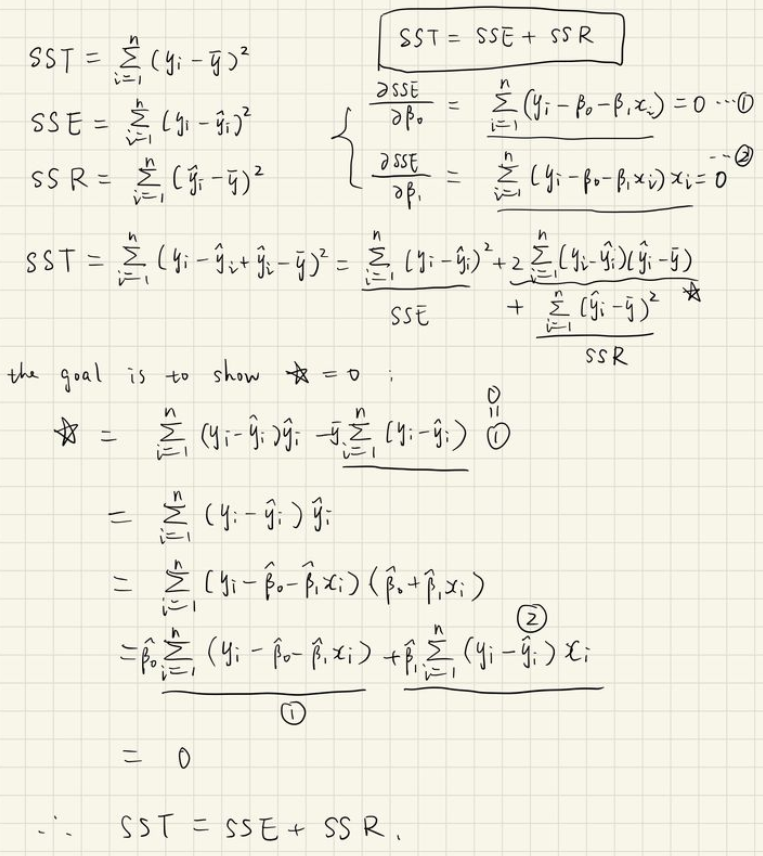 SST = SSE + SSR
SST = \sum_{i=1}^{n} (y_i - \bar{y})^2
SSE = \sum_{i=1}^{n} (y_i - \hat{y}_i)^2
SSR = \sum_{i=1}^{n} (\hat{y}_i - \bar{y})^2
{ \frac{∂SSE}{∂β_0} = \sum_{i=1}^{n} (y_i - β_0 - β_1 x_i) = 0 ... ①
\frac{∂SSE}{∂β_1} = \sum_{i=1}^{n} (y_i - β_0 - β_1 x_i) x_i = 0 ... ②
SST = \sum_{i=1}^{n} (y_i - \hat{y}_i + \hat{y}_i - \bar{y})^2 = \sum_{i=1}^{n} (y_i - \hat{y}_i)^2 + 2 \sum_{i=1}^{n} (y_i - \hat{y}_i)(\hat{y}_i - \bar{y})
SSE
☆
+ \sum_{i=1}^{n} (\hat{y}_i - \bar{y})^2
SSR
the goal is to show ☆ = 0 :
☆ = \sum_{i=1}^{n} (y_i - \hat{y}_i) \hat{y}_i - \bar{y} \sum_{i=1}^{n} (y_i - \hat{y}_i) ① = 0
= \sum_{i=1}^{n} (y_i - \hat{y}_i) \hat{y}_i
= \sum_{i=1}^{n} (y_i - \hat{β}_0 - \hat{β}_1 x_i)(\hat{β}_0 + \hat{β}_1 x_i)
= \hat{β}_0 \sum_{i=1}^{n} (y_i - \hat{β}_0 - \hat{β}_1 x_i) + \hat{β}_1 \sum_{i=1}^{n} (y_i - \hat{y}_i) x_i
① ②
= 0
∴ SST = SSE + SSR.